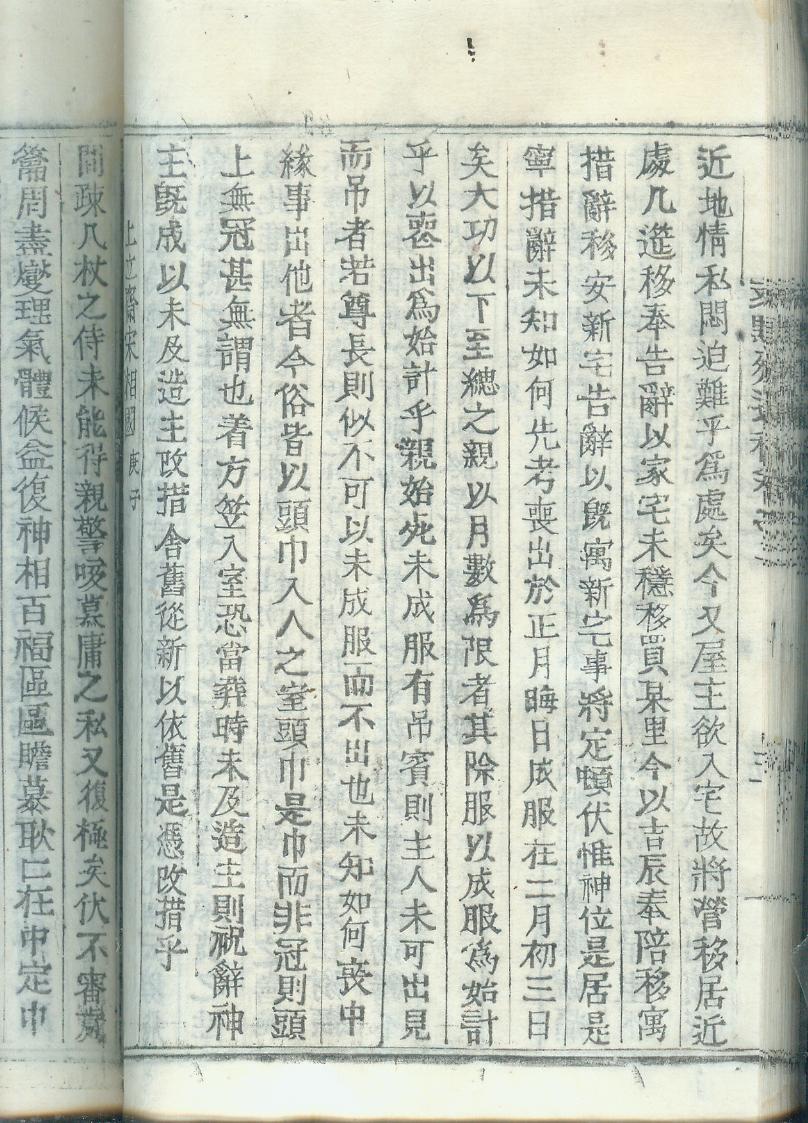 近地情私悶迫難乎爲處矣今又屋主欲入宅故將營移居近
處几筵移奉告辭以家宅未穩移買某里今以吉辰奉陪移寓
措辭移安新宅告辭以旣寓新宅事將定頓伏惟神位是居是
寧措辭未知如何先考喪出於正月晦日成服在二月初三日
矣大功以下至緦之親以月數爲限者其除服以成服爲始計
乎以喪出爲始計乎親始死未成服有吊賓則主人未可出見
而吊者若尊長則似不可以未成服而不出也未知如何喪中
緣事出他者今俗皆以頭巾入人之室頭巾是巾而非冠則頭
上無冠甚無謂也着方笠入室恐當葬時未及造主則祝辭神
主旣成以未及造主改措舍舊從新以依舊是憑改措乎
上立齋宋相國 庚子
間疎几杖之侍未能得親警咳慕庸之私又復極矣伏不審
當盡燮理氣體候益復神相百福區區瞻慕耿仁在中定中